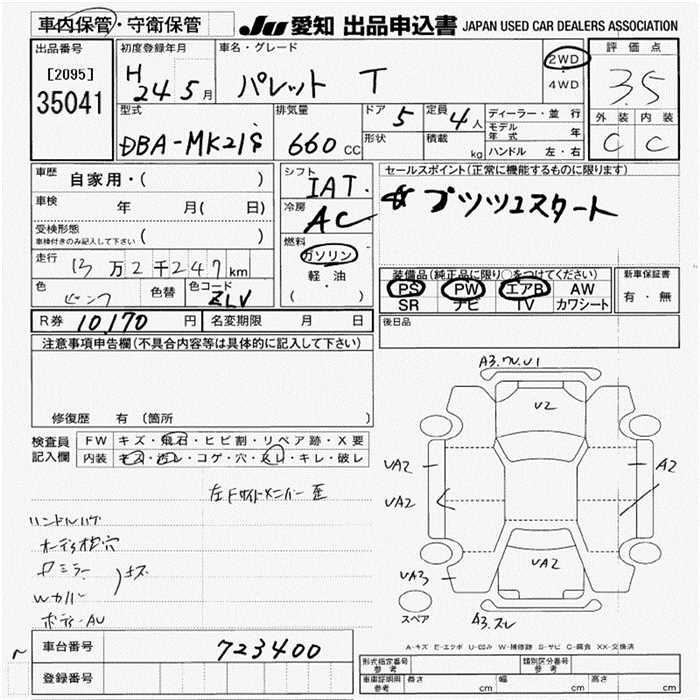 車内保管・守衛保管
JU 愛知 出品申込書 JAPAN USED CAR DEALERS ASSOCIATION
出品番号 [2095] 35041
初度登録年月 H 24 5月
車名・グレード パレット T
2WD
4WD
評価点 3.5
外装 内装
C C
型式 DBA-MK21S
排気量 660 CC
ドア 5
定員 4人
形状
積載 kg
ディーラー・並行
モデル年式 年
ハンドル 左・右
車歴 自家用・( )
車検 年 月( 日)
受検形態 ( )
車検付きのみ記入して下さい
走行 13万2千247km
色 ピンク
色替
色コード ZLV
シフト IAT.
冷房 AC
燃料 ガソリン
軽油
( ・ )
セールスポイント(正常に機能するものに限ります)
プッシュスタート
装備品(純正品に限り○をつけてください)
PS PW エアB AW
SR ナビ TV カワシート
新車保証書
有・無
後日品
R券 10,170円
名変期限 月 日
注意事項申告欄(不具合内容等は具体的に記入して下さい)
修復歴 有 (箇所 )
検査員記入欄
FW キズ・飛石・ヒビ割・リペア跡・X要
内装 キズ・汚レ・コゲ・穴・スレ・キレ・破レ
左Fサイドメンバー歪
ハンドルハゲ
オーディオ枠穴
Wカバー
キズ
ボディーAU
A3.ワレ.U1
U2
UA2
UA2
A2
UA2
UA3
A3.スレ
スペア
A-キズ E-エクボ U-凹み W-補修跡 S-サビ C-腐食 XX-交換済
車台番号 723400
登録番号
形式指定番号 参考
類別区分番号 参考
車庫証明用 参考 長さ cm 幅 cm 高さ cm